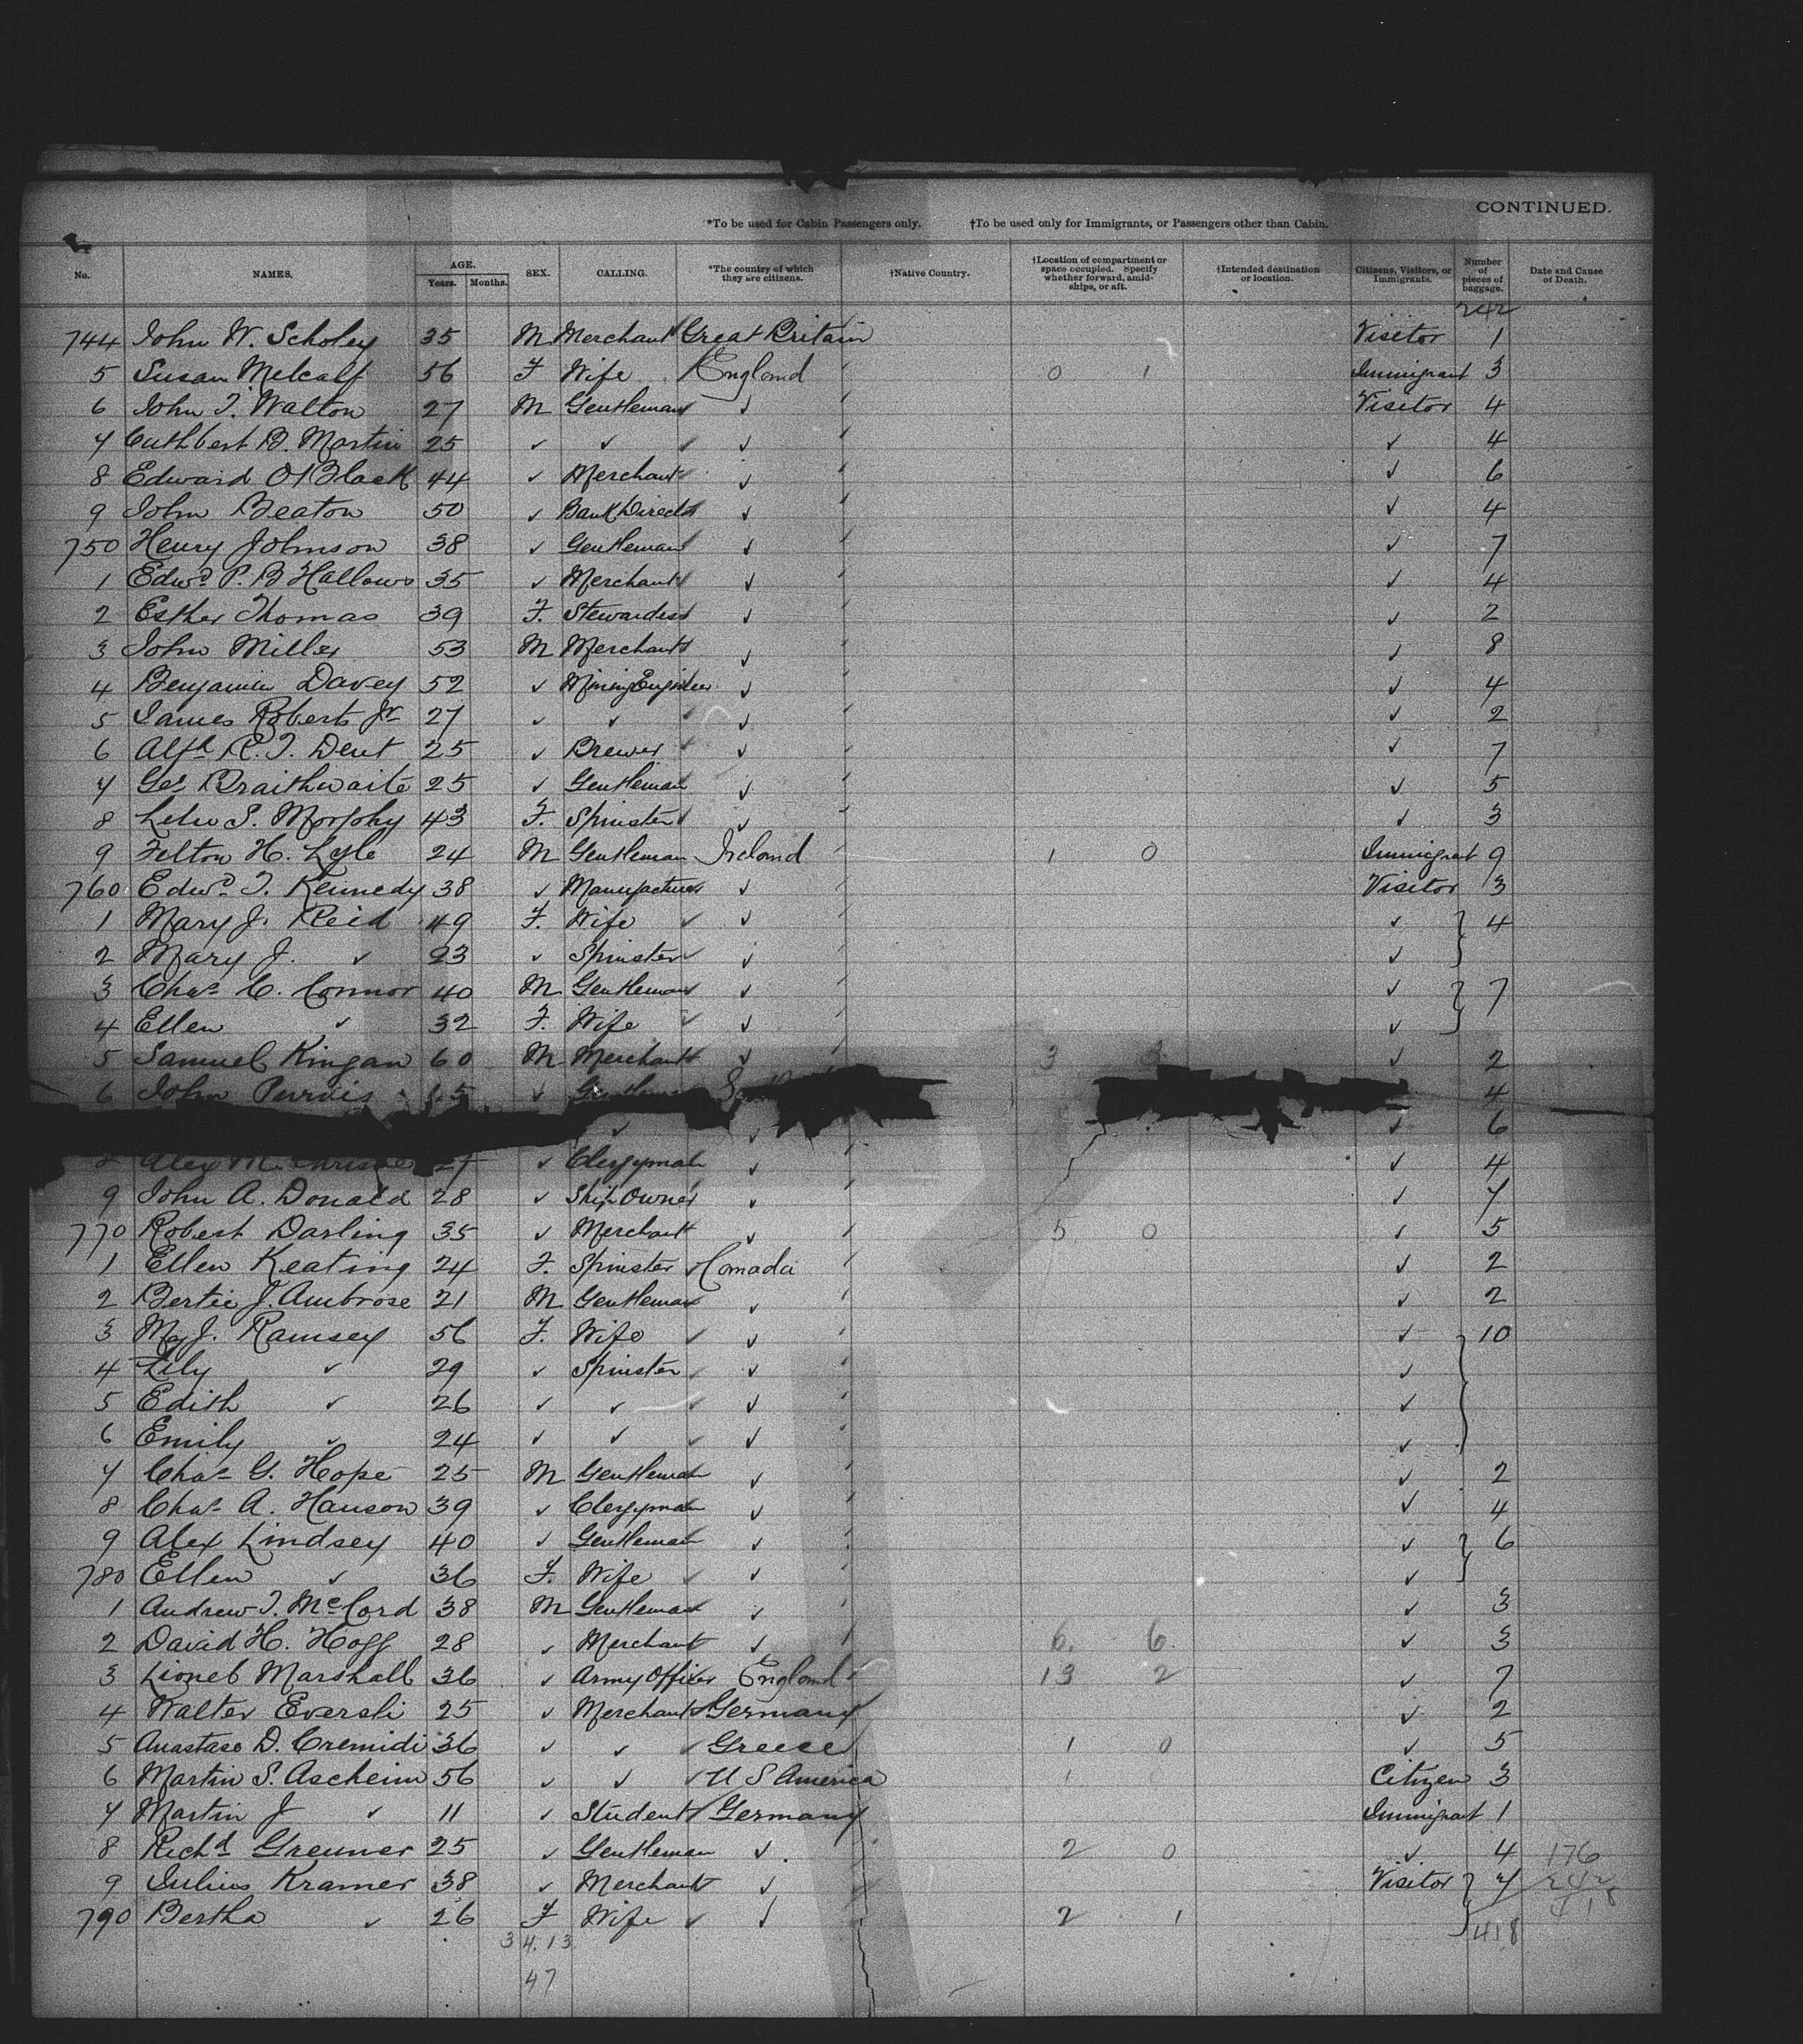 CONTINUED.
*To be used for Cabin Passengers only. †To be used only for Immigrants, or Passengers other than Cabin.
No. NAMES. AGE. Years. Months. SEX. CALLING. *The country of which they are citizens. †Native Country. †Location of compartment or space occupied. Specify whether forward, amidships, or aft. †Intended destination or location. Citizens, Visitors, or Immigrants. Number of pieces of baggage. Date and Cause of Death.
242
744 John W. Scholey 35 M Merchant Great Britain Visitor 1
5 Susan Metcalf 56 F Wife England 0 1 Immigrant 3
6 John T. Walton 27 M Gentleman ✓ Visitor 4
7 Cuthbert B. Martin 25 ✓ ✓ ✓ ✓ 4
8 Edward O Black 44 ✓ Merchant ✓ ✓ 6
9 John Beaton 50 ✓ Bank Director ✓ ✓ 4
750 Henry Johnson 38 ✓ Gentleman ✓ ✓ 7
1 Edwd. P. B Hallows 35 ✓ Merchant ✓ ✓ 4
2 Esther Thomas 39 F. Stewardess ✓ ✓ 2
3 John Miller 53 M Merchant ✓ ✓ 8
4 Benjamin Davey 52 ✓ Mining Engineer ✓ ✓ 4
5 James Roberts Jr 27 ✓ ✓ ✓ ✓ 2
6 Alfd. R. T. Dent 25 ✓ Brewer ✓ ✓ 7
7 Geo Braithwaite 25 ✓ Gentleman ✓ ✓ 5
8 S. Morphy 43 F. Spinster ✓ ✓ 3
9 Felton H. Lyle 24 M Gentleman Ireland 1 0 Immigrant 9
760 Edwd. T. Kennedy 38 ✓ Manufacturer ✓ Visitor 3
1 Mary J. Reid 49 F. Wife ✓ ✓ 4
2 Mary J. ✓ 23 ✓ Spinster ✓ ✓
3 Chas C. Connor 40 M Gentleman ✓ ✓ 7
4 Ellen ✓ 32 F. Wife ✓ ✓
5 Samuel Kingan 60 M Merchant ✓ 3 ✓ 2
6 John Purvis ✓ Gentleman 4
✓ ✓ ✓ 6
Alex M. ✓ Clergyman ✓ ✓ 4
9 John A. Donald 28 ✓ Ship Owner ✓ ✓ 7
770 Robert Darling 35 ✓ Merchant ✓ 5 0 ✓ 5
1 Ellen Keating 24 F. Spinster Canada ✓ 2
2 Bertie J. Ambrose 21 M Gentleman ✓ ✓ 2
3 J. Ramsey 56 F. Wife ✓ ✓ 10
4 Lily ✓ 29 ✓ Spinster ✓ ✓
5 Edith ✓ 26 ✓ ✓ ✓ ✓
6 Emily ✓ 24 ✓ ✓ ✓ ✓
7 Chas G. Hope 25 M Gentleman ✓ ✓ 2
8 Chas. A. Hanson 39 ✓ Clergyman ✓ ✓ 4
9 Alex Lindsey 40 ✓ Gentleman ✓ ✓ 6
780 Ellen ✓ 36 F. Wife ✓ ✓
1 Andrew T. McCord 38 M Gentleman ✓ ✓ 3
2 David H. Hogg 28 ✓ Merchant ✓ 6. 6. ✓ 3
3 Lionel Marshall 36 ✓ Army Officer England 13 2 ✓ 7
4 Walter Eversli 25 ✓ Merchant Germany ✓ 2
5 Anastase D. Cremidi 36 ✓ ✓ Greece 1 0 ✓ 5
6 Martin S. Ascheim 56 ✓ ✓ U S America 1 Citizen 3
7 Martin J ✓ 11 ✓ Student Germany Immigrant 1
8 Richd. Greuner 25 ✓ Gentleman ✓ 2 0 ✓ 4 176
9 Julius Kramer 38 ✓ Merchant ✓ Visitor 7 242
790 Bertha ✓ 26 F Wife ✓ 2 1 418
34.13 418
47